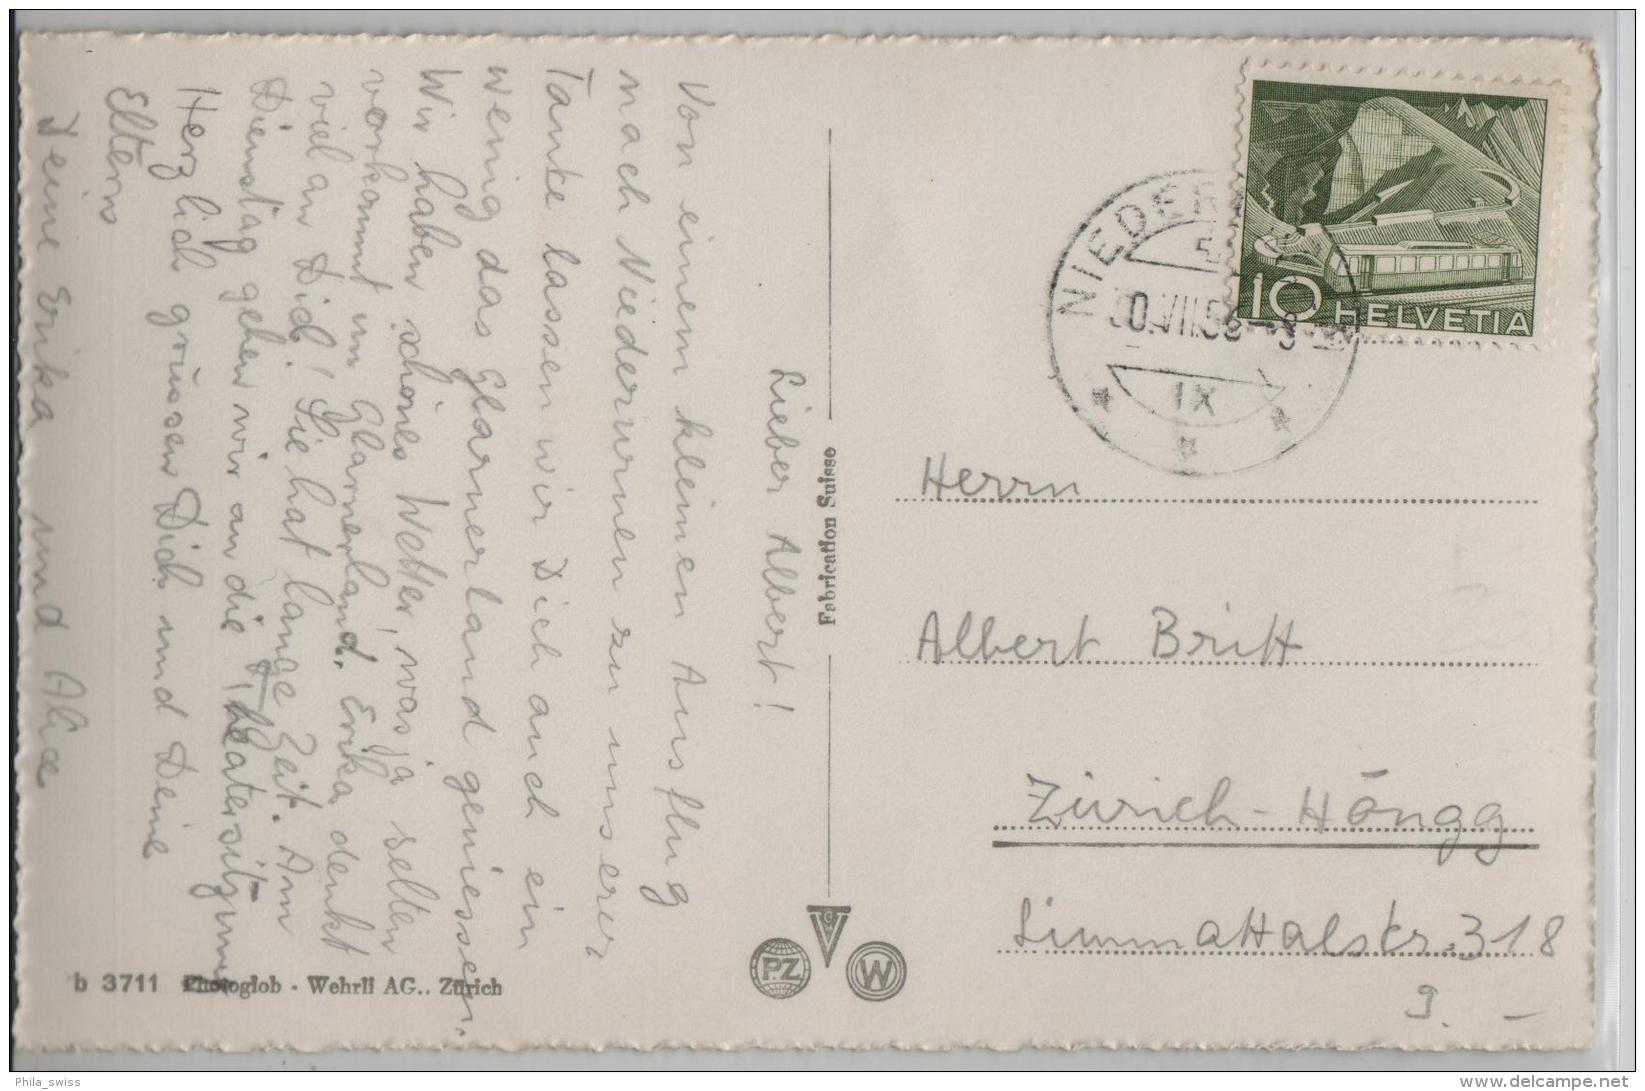 Lieber Albert!
Von einem kleinen Ausflug
nach Niederurnen zu unserer
Tante lassen wir Dich auch ein
wenig das Glarnerland geniessen.
Wir haben schönes Wetter, was ja selten
vorkommt im Glarnerland. Erika denkt
viel an Dich! Sie hat lange Zeit. Am
Dienstag gehen wir an die Theatersitzung
Herzlich grüssen Dich und Deine
Eltern
Deine Erika und Alice
Fabrication Suisse
10 HELVETIA
NIEDER
IX
Herrn
Albert Britt
Zürich-Höngg
Limmattalstr. 318
9. –
PZ
G
W
b 3711 Photoglob - Wehrli AG.. Zürich
Phila_swiss
www.delcampe.net